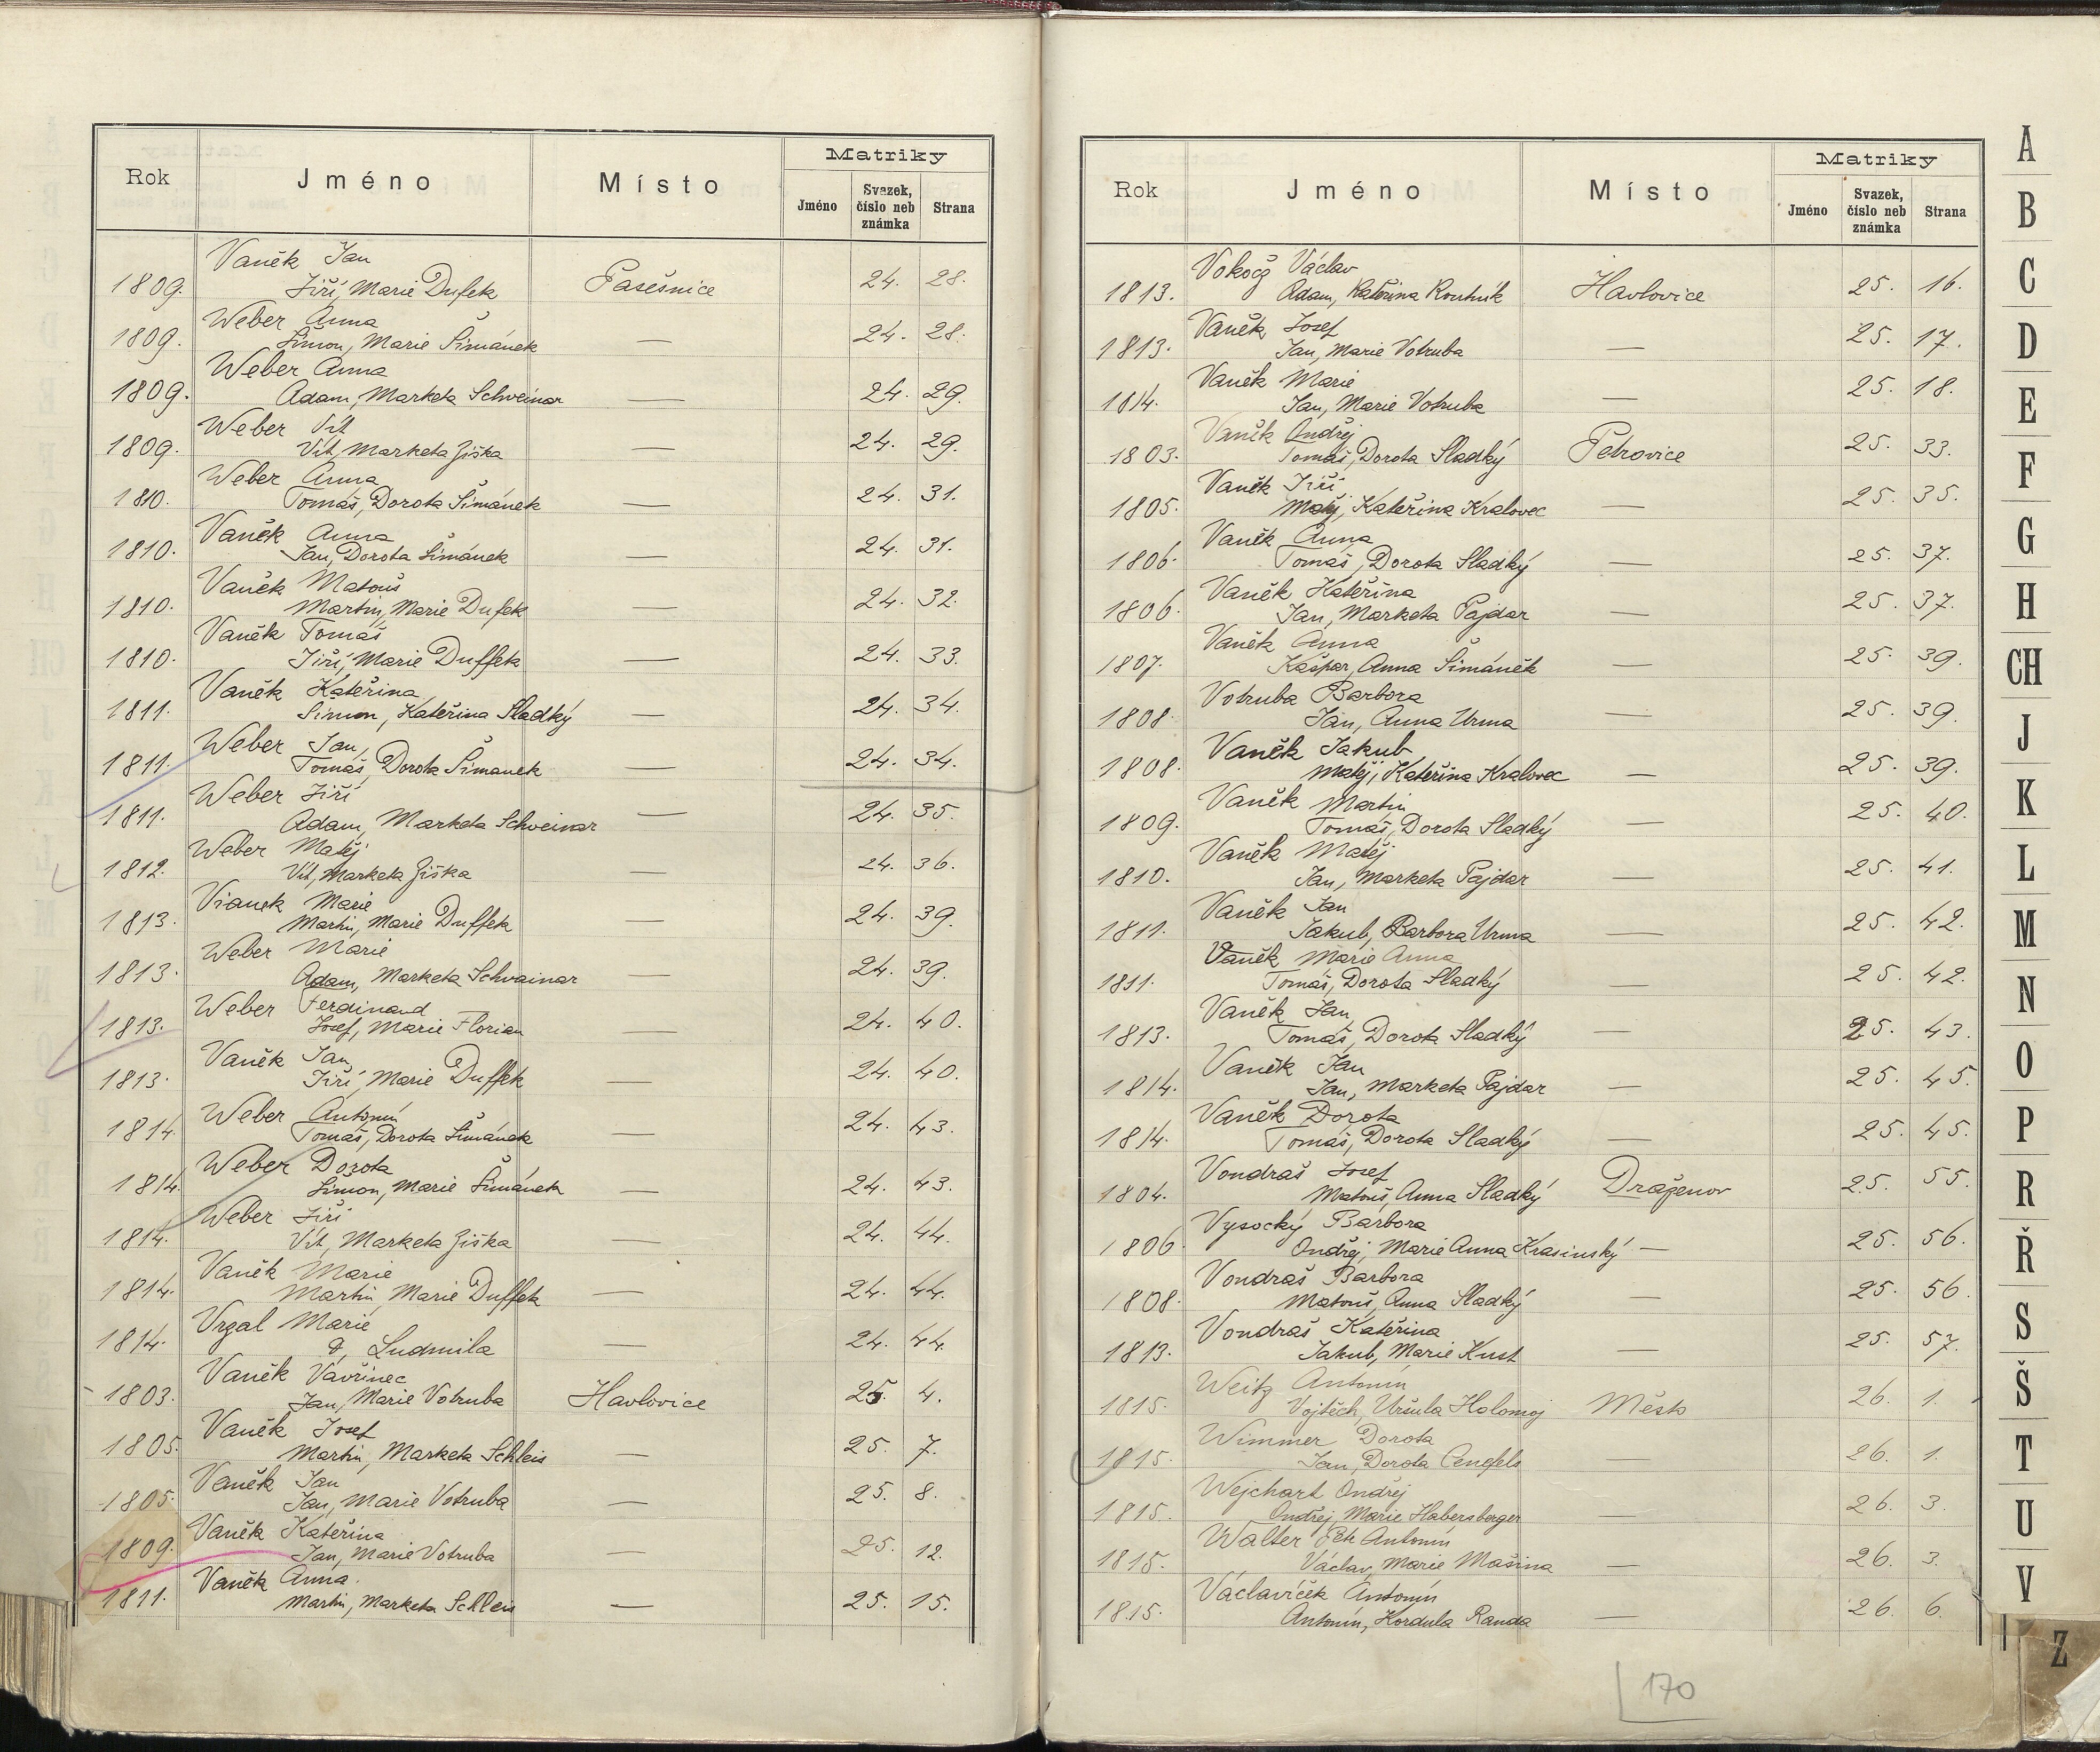 Rok Jméno Místo Matriky
Jméno Svazek, číslo neb známka Strana
Vaněk Jan
1809. Jiří, Marie Dufek Pasešnice 24. 28.
Weber Anna
1809. Šimon, Marie Šimánek — 24. 28.
Weber Anna
1809. Adam, Marketa Schweinar — 24. 29.
Weber Vít
1809. Vít, Marketa Ziška — 24. 29.
Weber Anna
1810. Tomáš, Dorota Šimánek — 24. 31.
Vaněk Anna
1810. Jan, Dorota Šimánek — 24. 31.
Vaněk Matouš
1810. Martin, Marie Dufek — 24. 32.
Vaněk Tomáš
1810. Jiří, Marie Duffek — 24. 33.
Vaněk Kateřina
1811. Šimon, Kateřina Sladký — 24. 34.
Weber Jan,
1811. Tomáš, Dorota Šimanek — 24. 34.
Weber Jiří
1811. Adam, Marketa Schweinar — 24. 35.
Weber Matěj
1812. Vít, Marketa Ziška — 24. 36.
Vianek Marie
1813. Martin, Marie Duffek — 24. 39.
Weber Marie
1813. Adam, Marketa Schvainar — 24. 39.
Weber Ferdinand
1813. Josef, Marie Florian — 24. 40.
Vaněk Jan
1813. Jiří, Marie Duffek — 24. 40.
Weber Antonín
1814. Tomáš, Dorota Šimánek — 24. 43.
Weber Dorota
1814. Šimon, Marie Šimánek — 24. 43.
Weber Jiří
1814. Vít, Marketa Ziška — 24. 44.
Vaněk Marie
1814. Martin, Marie Duffek — 24. 44.
Vrzal Marie
1814. Ludmila — 24. 44.
Vaněk Vavřinec
1803. Jan, Marie Votruba Havlovice 25. 4.
Vaněk Josef
1805. Martin, Marketa Schleis — 25. 7.
Vaněk Jan
1805. Jan, Marie Votruba — 25. 8.
Vaněk Kateřina
1809. Jan, Marie Votruba — 25. 12.
Vaněk Anna.
1811. Martin, Marketa Schleis — 25. 15.
Rok Jméno Místo Matriky
Jméno Svazek, číslo neb známka Strana
Václav
1813. Adam, Kateřina Havlovice 25. 16.
Vaněk Josef
1813. Jan, Marie Votruba — 25. 17.
Vaněk Marie
1814. Jan, Marie Votruba — 25. 18.
Vaněk Ondřej
1803. Tomáš, Dorota Sladký Petrovice 25. 33.
Vaněk Jiří
1805. Matěj, Kateřina Kralovec — 25. 35.
Vaněk Anna
1806. Tomáš, Dorota Sladký — 25. 37.
Vaněk Kateřina
1806. Jan, Marketa Pajdar — 25. 37.
Vaněk Anna
1807. Kašpar, Anna Šimáněk — 25. 39.
Votruba Barbora
1808. Jan, Anna Urma — 25. 39.
Vaněk Jakub
1808. Matěj, Kateřina Kralovec — 25. 39.
Vaněk Martin
1809. Tomáš, Dorota Sladký — 25. 40.
Vaněk Matěj
1810. Jan, Marketa Pajdar — 25. 41.
Vaněk Jan
1811. Jakub, Barbora Urma — 25. 42.
Vaněk Marie Anna
1811. Tomáš, Dorota Sladký — 25. 42.
Vaněk Jan
1813. Tomáš, Dorota Sladký — 25. 43.
Vaněk Jan
1814. Jan, Marketa Pajdar — 25. 45.
Vaněk Dorota
1814. Tomáš, Dorota Sladký — 25. 45.
Vondraš Josef
1804. Matouš, Anna Sladký Draženov 25. 55.
Vysocký Barbora
1806. Ondřej, Marie Anna Krasinský — 25. 56.
Vondraš Barbora
1808. Matouš, Anna Sladký — 25. 56.
Vondraš Kateřina
1813. Jakub, Marie Kust — 25. 57.
Weitz Antonín
1815. Vojtěch, Uršula Město 26. 1.
Wimmer Dorota
1815. Jan, Dorota — 26. 1.
Wejchart Ondřej
1815. Ondřej, Marie Habersberger — 26. 3.
Walter Petr Antonín
1815. Václav, Marie Mašina — 26. 3.
Václavíček Antonín
1815. Antonín, Kordula Randa — 26. 6.
170
A
B
C
D
E
F
G
H
CH
J
K
L
M
N
O
P
R
Ř
S
Š
T
U
V
Z